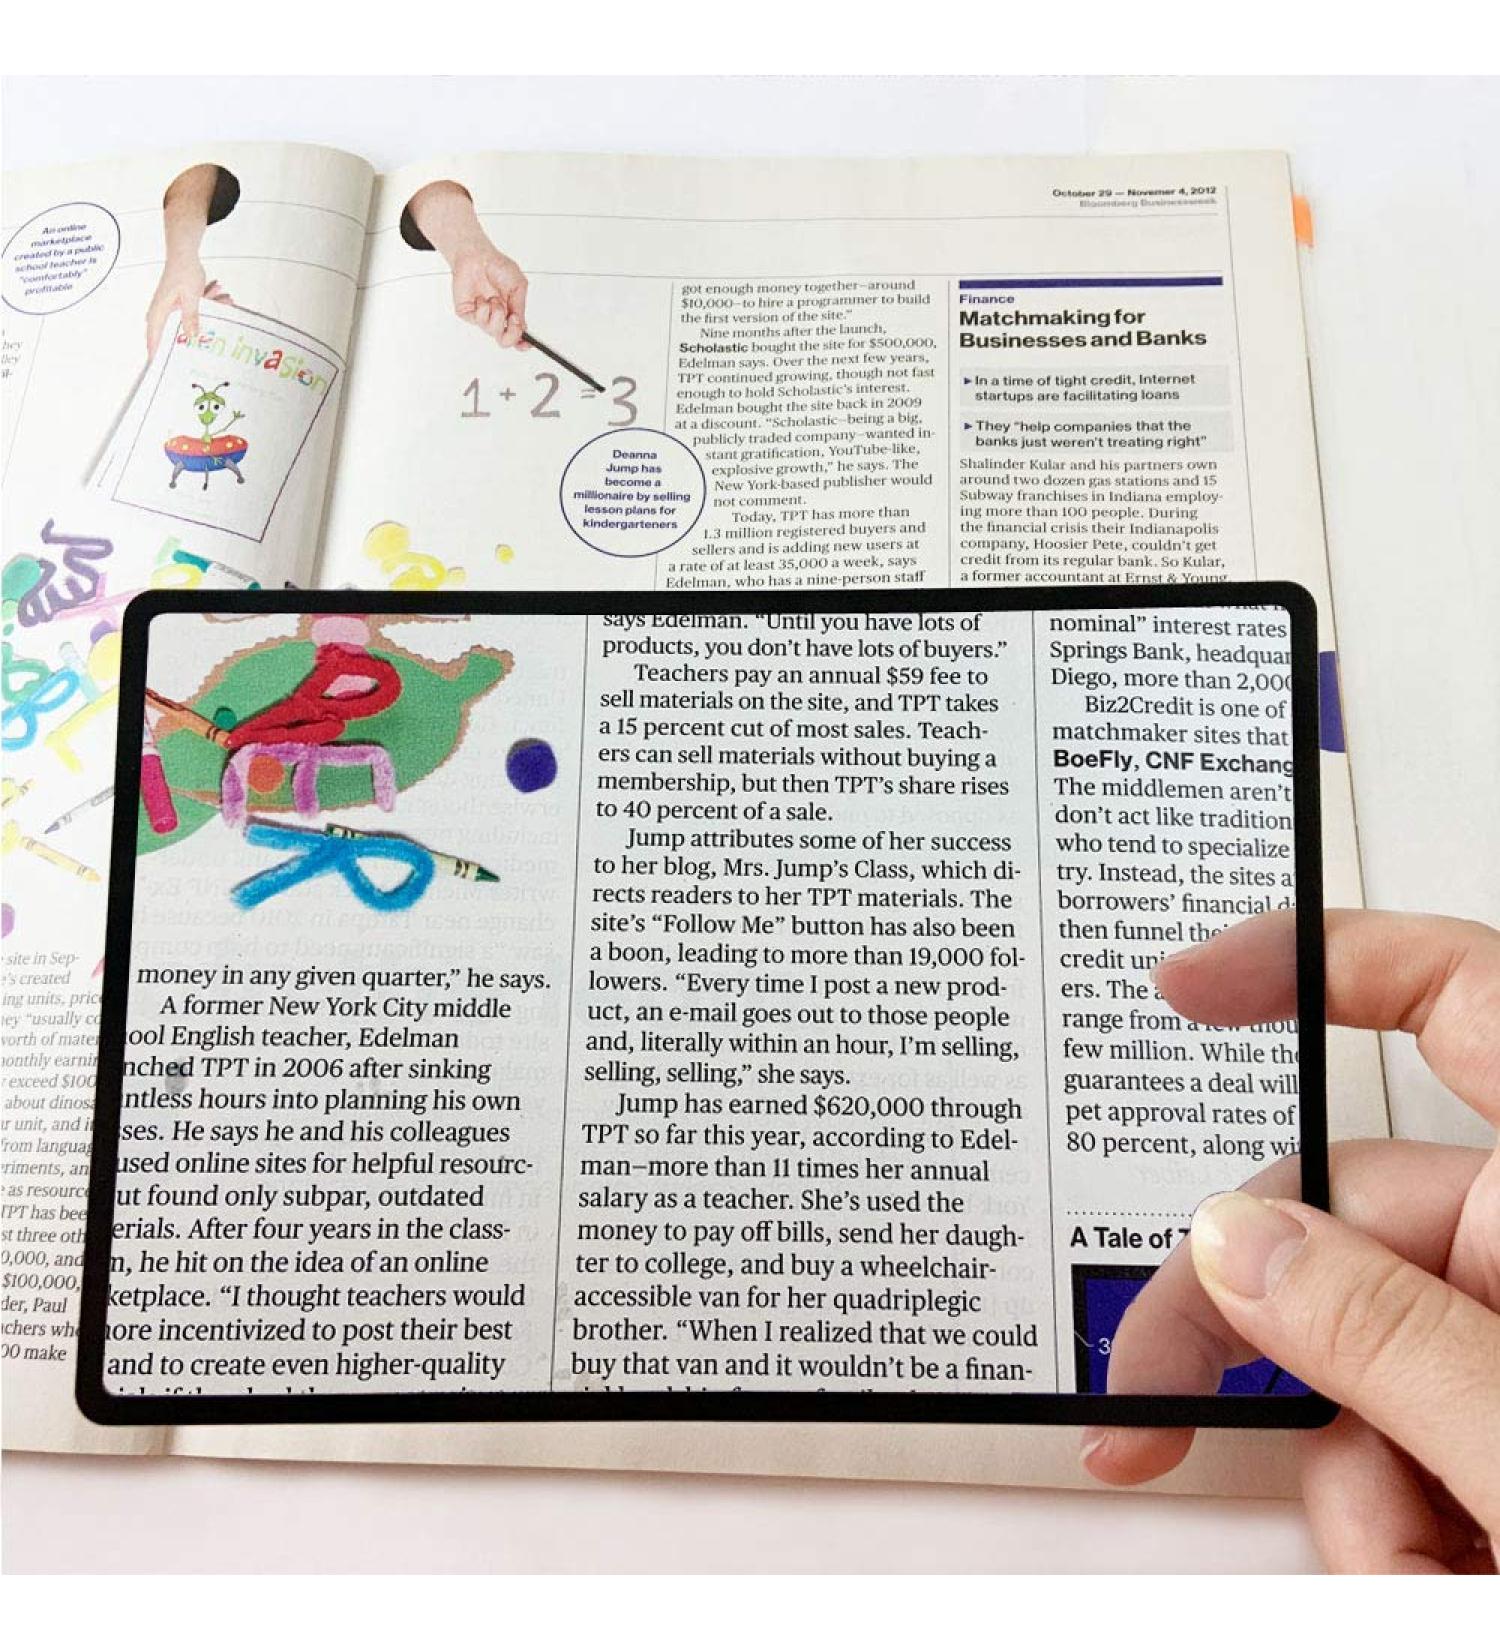 An online
marketplace
created by a public
school teacher is
"comfortably"
profitable
hey
alien invasion
1 + 2 = 3
Deanna
Jump has
become a
millionaire by selling
lesson plans for
kindergarteners
October 29 — Novemer 4, 2012
Bloomberg Businessweek
got enough money together—around
$10,000—to hire a programmer to build
the first version of the site."
Nine months after the launch,
Scholastic bought the site for $500,000,
Edelman says. Over the next few years,
TPT continued growing, though not fast
enough to hold Scholastic's interest.
Edelman bought the site back in 2009
at a discount. "Scholastic—being a big,
publicly traded company—wanted in-
stant gratification, YouTube-like,
explosive growth," he says. The
New York-based publisher would
not comment.
Today, TPT has more than
1.3 million registered buyers and
sellers and is adding new users at
a rate of at least 35,000 a week, says
Edelman, who has a nine-person staff
Finance
Matchmaking for
Businesses and Banks
▸ In a time of tight credit, Internet
startups are facilitating loans
▸ They "help companies that the
banks just weren't treating right"
Shalinder Kular and his partners own
around two dozen gas stations and 15
Subway franchises in Indiana employ-
ing more than 100 people. During
the financial crisis their Indianapolis
company, Hoosier Pete, couldn't get
credit from its regular bank. So Kular,
a former accountant at Ernst & Young
site in Sep-
's created
ing units, pric
ey "usually co
worth of mater
monthly earnin
exceed $100
about dinosa
ur unit, and i
from languag
eriments, an
as resource
TPT has bee
st three oth
0,000, and
$100,000,
der, Paul
achers wh
00 make
money in any given quarter," he says.
A former New York City middle
ool English teacher, Edelman
nched TPT in 2006 after sinking
ntless hours into planning his own
ses. He says he and his colleagues
used online sites for helpful resourc-
ut found only subpar, outdated
erials. After four years in the class-
m, he hit on the idea of an online
ketplace. "I thought teachers would
ore incentivized to post their best
and to create even higher-quality
says Edelman. "Until you have lots of
products, you don't have lots of buyers."
Teachers pay an annual $59 fee to
sell materials on the site, and TPT takes
a 15 percent cut of most sales. Teach-
ers can sell materials without buying a
membership, but then TPT's share rises
to 40 percent of a sale.
Jump attributes some of her success
to her blog, Mrs. Jump's Class, which di-
rects readers to her TPT materials. The
site's "Follow Me" button has also been
a boon, leading to more than 19,000 fol-
lowers. "Every time I post a new prod-
uct, an e-mail goes out to those people
and, literally within an hour, I'm selling,
selling, selling," she says.
Jump has earned $620,000 through
TPT so far this year, according to Edel-
man—more than 11 times her annual
salary as a teacher. She's used the
money to pay off bills, send her daugh-
ter to college, and buy a wheelchair-
accessible van for her quadriplegic
brother. "When I realized that we could
buy that van and it wouldn't be a finan-
nominal" interest rates
Springs Bank, headquar
Diego, more than 2,000
Biz2Credit is one of
matchmaker sites that
BoeFly, CNF Exchang
The middlemen aren't
don't act like tradition
who tend to specialize
try. Instead, the sites a
borrowers' financial d
then funnel the
credit uni
ers. The a
range from a few thou
few million. While the
guarantees a deal will
pet approval rates of
80 percent, along wi
A Tale of T
3